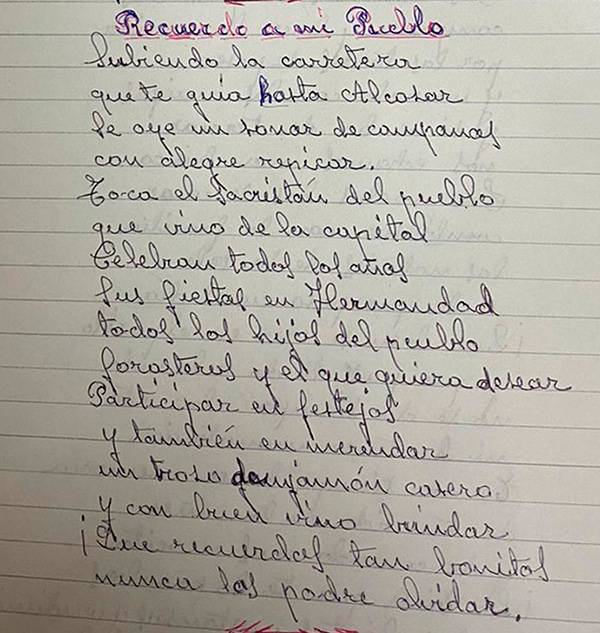 Recuerdo a mi Pueblo
Subiendo la carretera
que te guia hasta Alcozar
Se oye un sonar de campanas
con alegre repicar.
Toca el Sacristán del pueblo
que vino de la capital
Celebran todos los años
Sus fiestas en Hermandad
todos los hijos del pueblo
forasteros y el que quiera desear
Participar en festejos
y también en merendar
un trozo de jamón casero
y con buen vino brindar
¡Que recuerdos tan bonitos
nunca los podre olvidar.